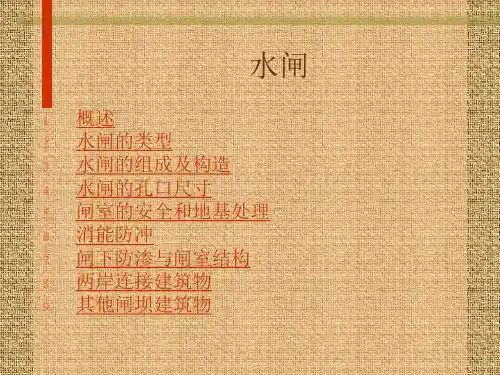 水闸
1. 概述
2. 水闸的类型
3. 水闸的组成及构造
4. 水闸的孔口尺寸
5. 闸室的安全和地基处理
6. 消能防冲
7. 闸下防渗与闸室结构
8. 两岸连接建筑物
9. 其他闸坝建筑物